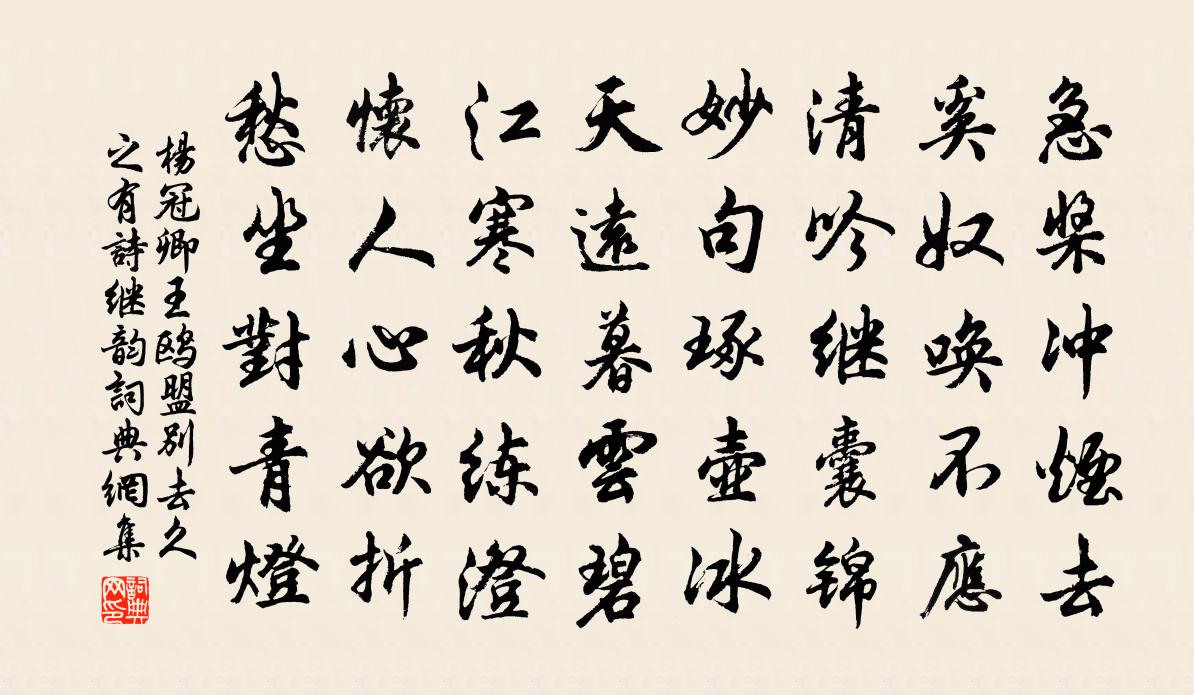 急槳冲煙去
奚奴唤不應
清吟继囊锦
妙句琢壺冰
天遠暮雲碧
江寒秋练澄
懷人心欲折
愁坐對青燈
楊冠卿王鸥盟别去久
之有詩继韵詞典網集
詞典网印